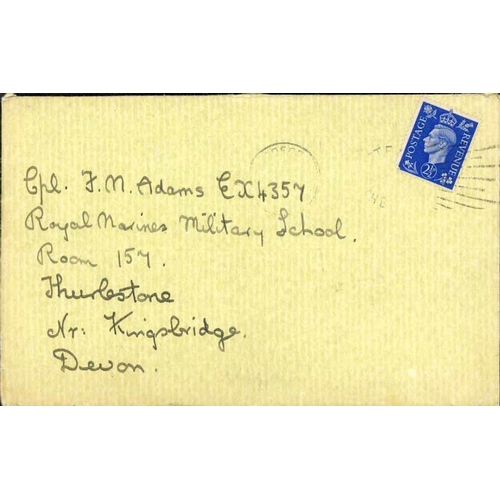 Cpl. F. N. Adams EX4357
Royal Marines Military School.
Room 157.
Thurlestone
Nr: Kingsbridge.
Devon.
POSTAGE
REVENUE
2½D